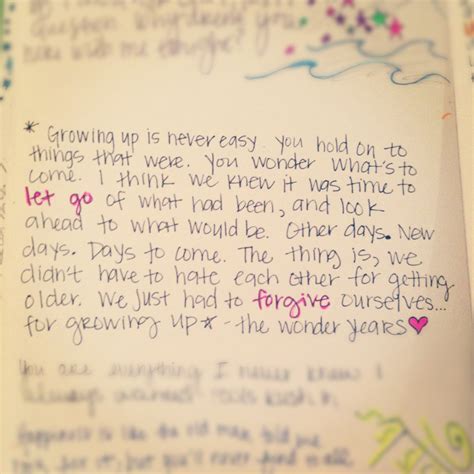 question why
* Growing up is never easy. You hold on to
things that were. You wonder what's to
come. I think we knew it was time to
let go of what had been, and look
ahead to what would be. Other days. New
days. Days to come. The thing is, we
didn't have to hate each other for getting
older. We just had to forgive ourselves...
for growing up* - the wonder years♥
You are everything I never knew I
always wanted
Happiness is like the old man told me
for it, but you'll never find it all